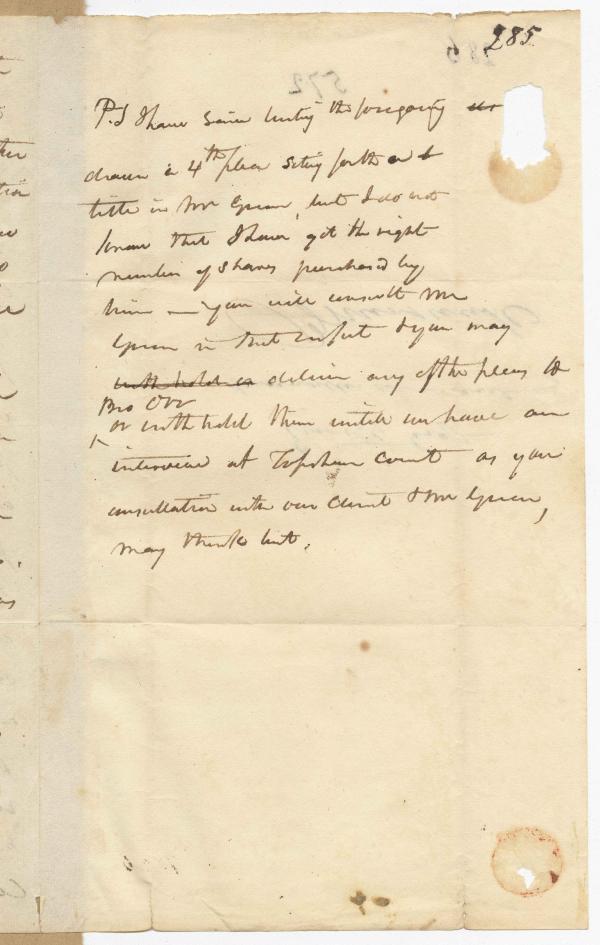 285
572
P.S I have since writing the foregoing
drawn a 4th plea setting forth a
title in Mr Green, but I do not
know that I have got the right
number of shares purchased by
him — you will consult Mr
Green in that respect & you may
with hold or deliver any of the pleas to
Bro Orr
or withhold them until we have an
interview at Topsham Court as your
consultation with our client & Mr Green,
may think best.